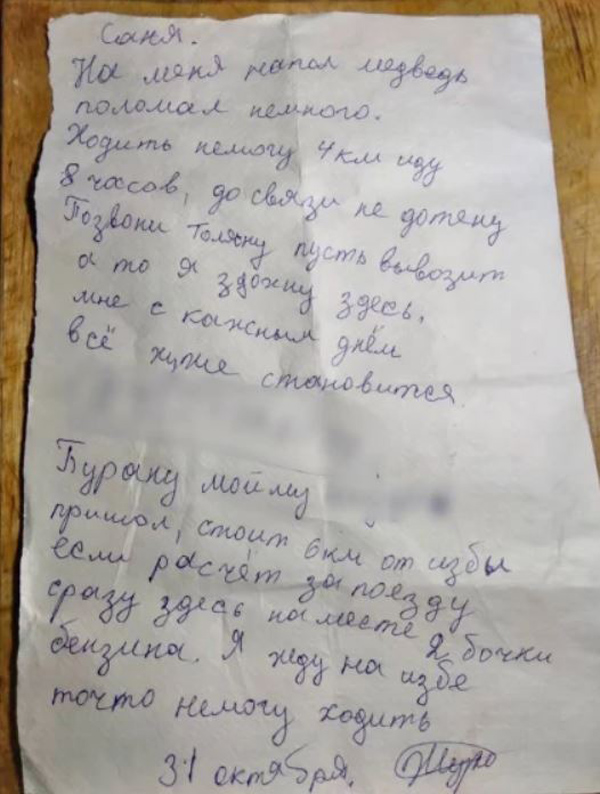 Саня.
На меня напал медведь
поломал немного.
Ходить немогу 4 км иду
8 часов, до связи не дотену
Позвони Толяну пусть вывозит
а то я здохну здесь.
мне с кажным днём
всё хуже становится
Бурану моиму
пришол, стоит 6 км от избы
если расчёт за поезду
сразу здесь на месте 2 бочки
бензина. Я жду на избе
точто немогу ходить
31 октября.